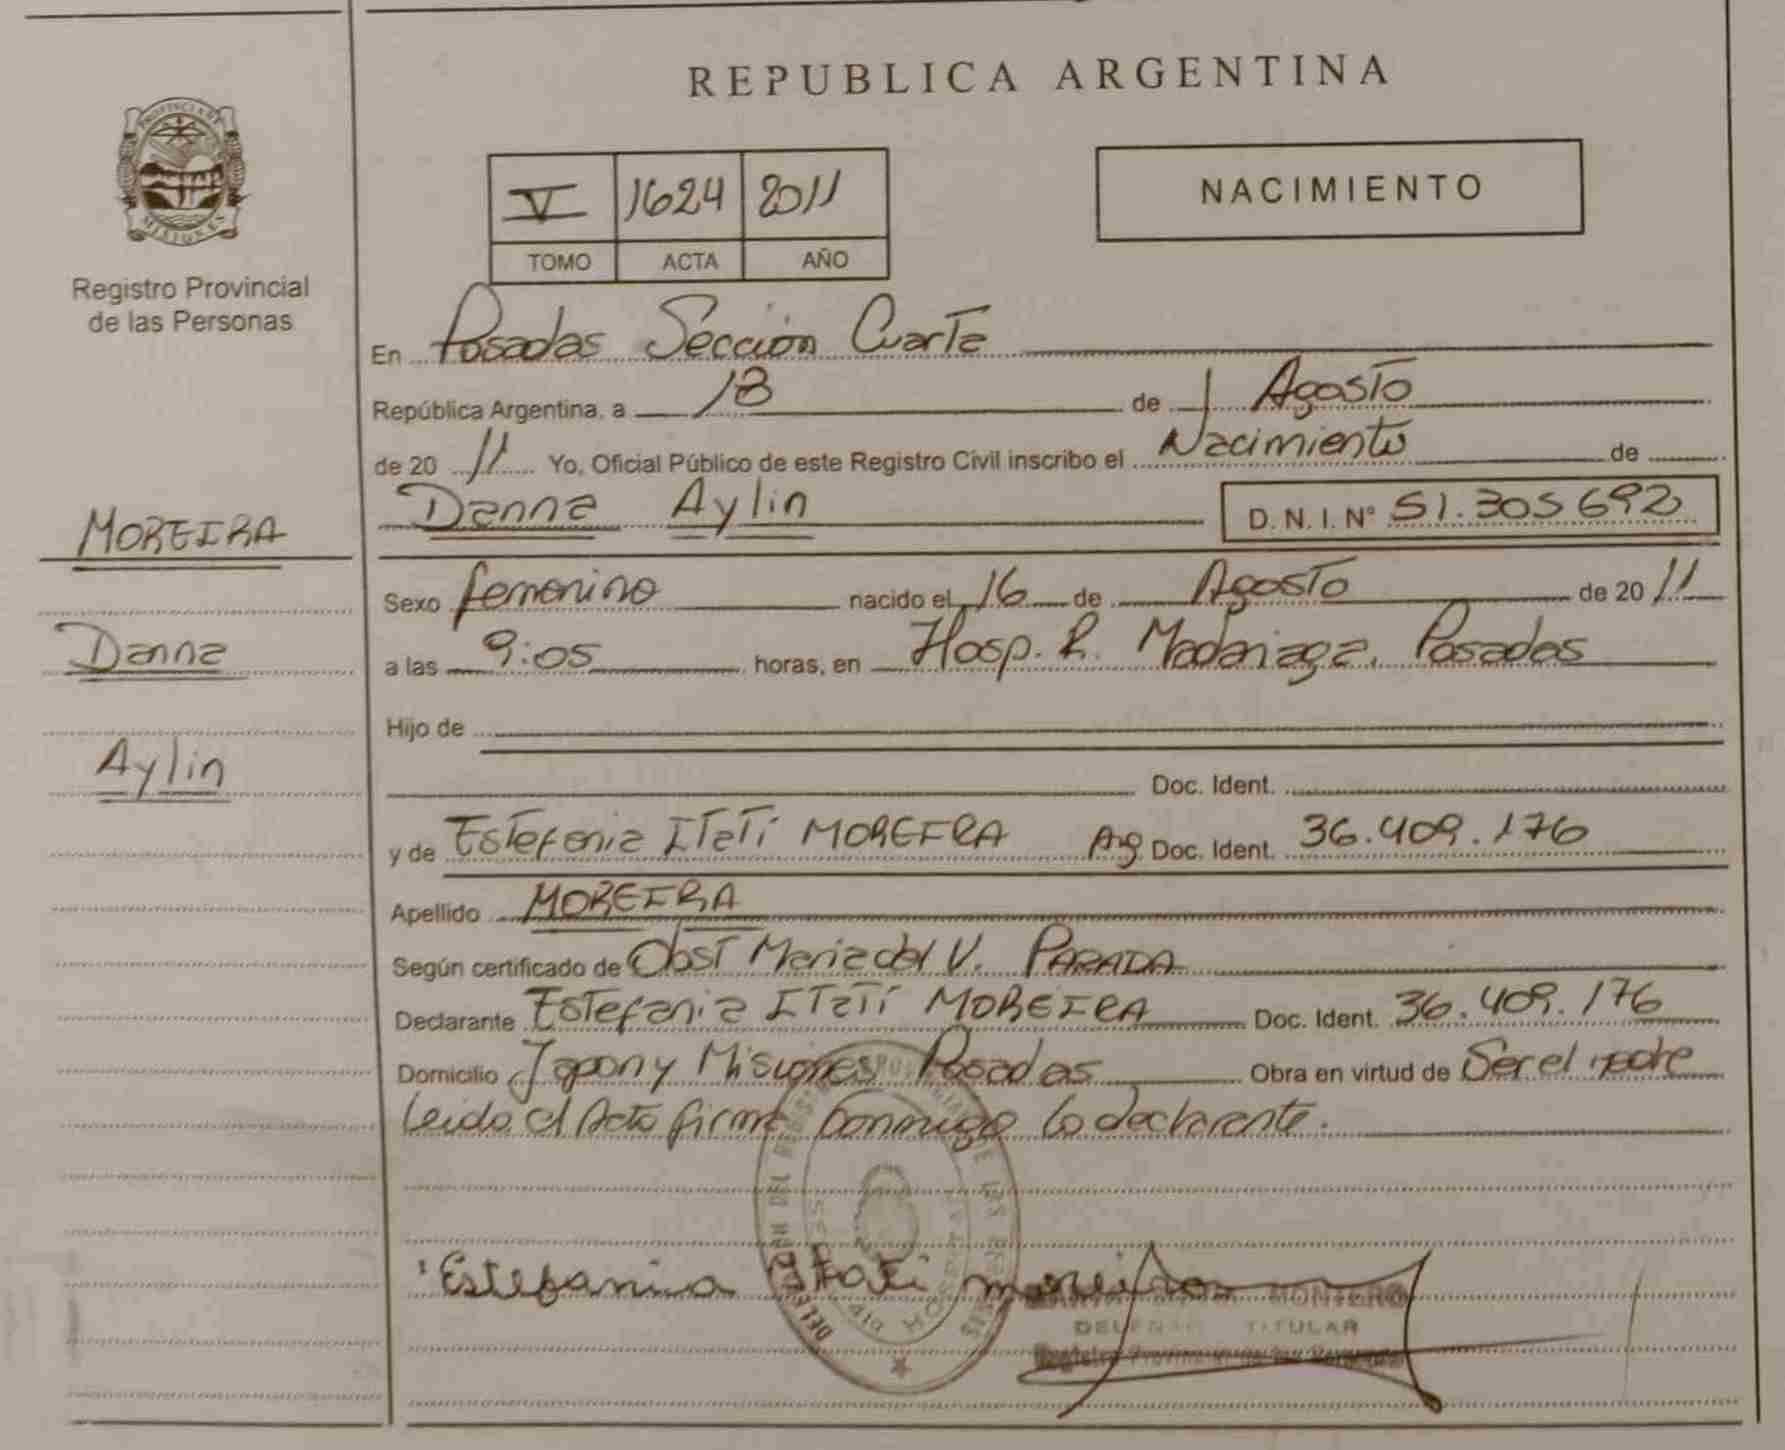 PROVINCIA DE
MISIONES
Registro Provincial
de las Personas
MOREIRA
Danna
Aylin
REPUBLICA ARGENTINA
V 1624 2011
TOMO ACTA AÑO
NACIMIENTO
En Posadas Sección Cuarta
República Argentina, a 18 de Agosto
de 20 11 Yo, Oficial Público de este Registro Civil inscribo el Nacimiento de
Danna Aylin D. N. I. N° 51.305692
Sexo femenino nacido el 16 de Agosto de 20 11
a las 9:05 horas, en Hosp. R. Madariaga. Posadas
Hijo de
Doc. Ident.
y de Estefania Itatí MOREIRA Arg Doc. Ident. 36.409.176
Apellido MOREIRA
Según certificado de Obst Maria del V. PARADA
Declarante Estefania Itatí MOREIRA Doc. Ident. 36.409.176
Domicilio Japon y Misiones Posadas Obra en virtud de Ser el madre
Leida el Acta firma conmigo la declarante.
Estefania Itati moreira
MONTERO
TITULAR